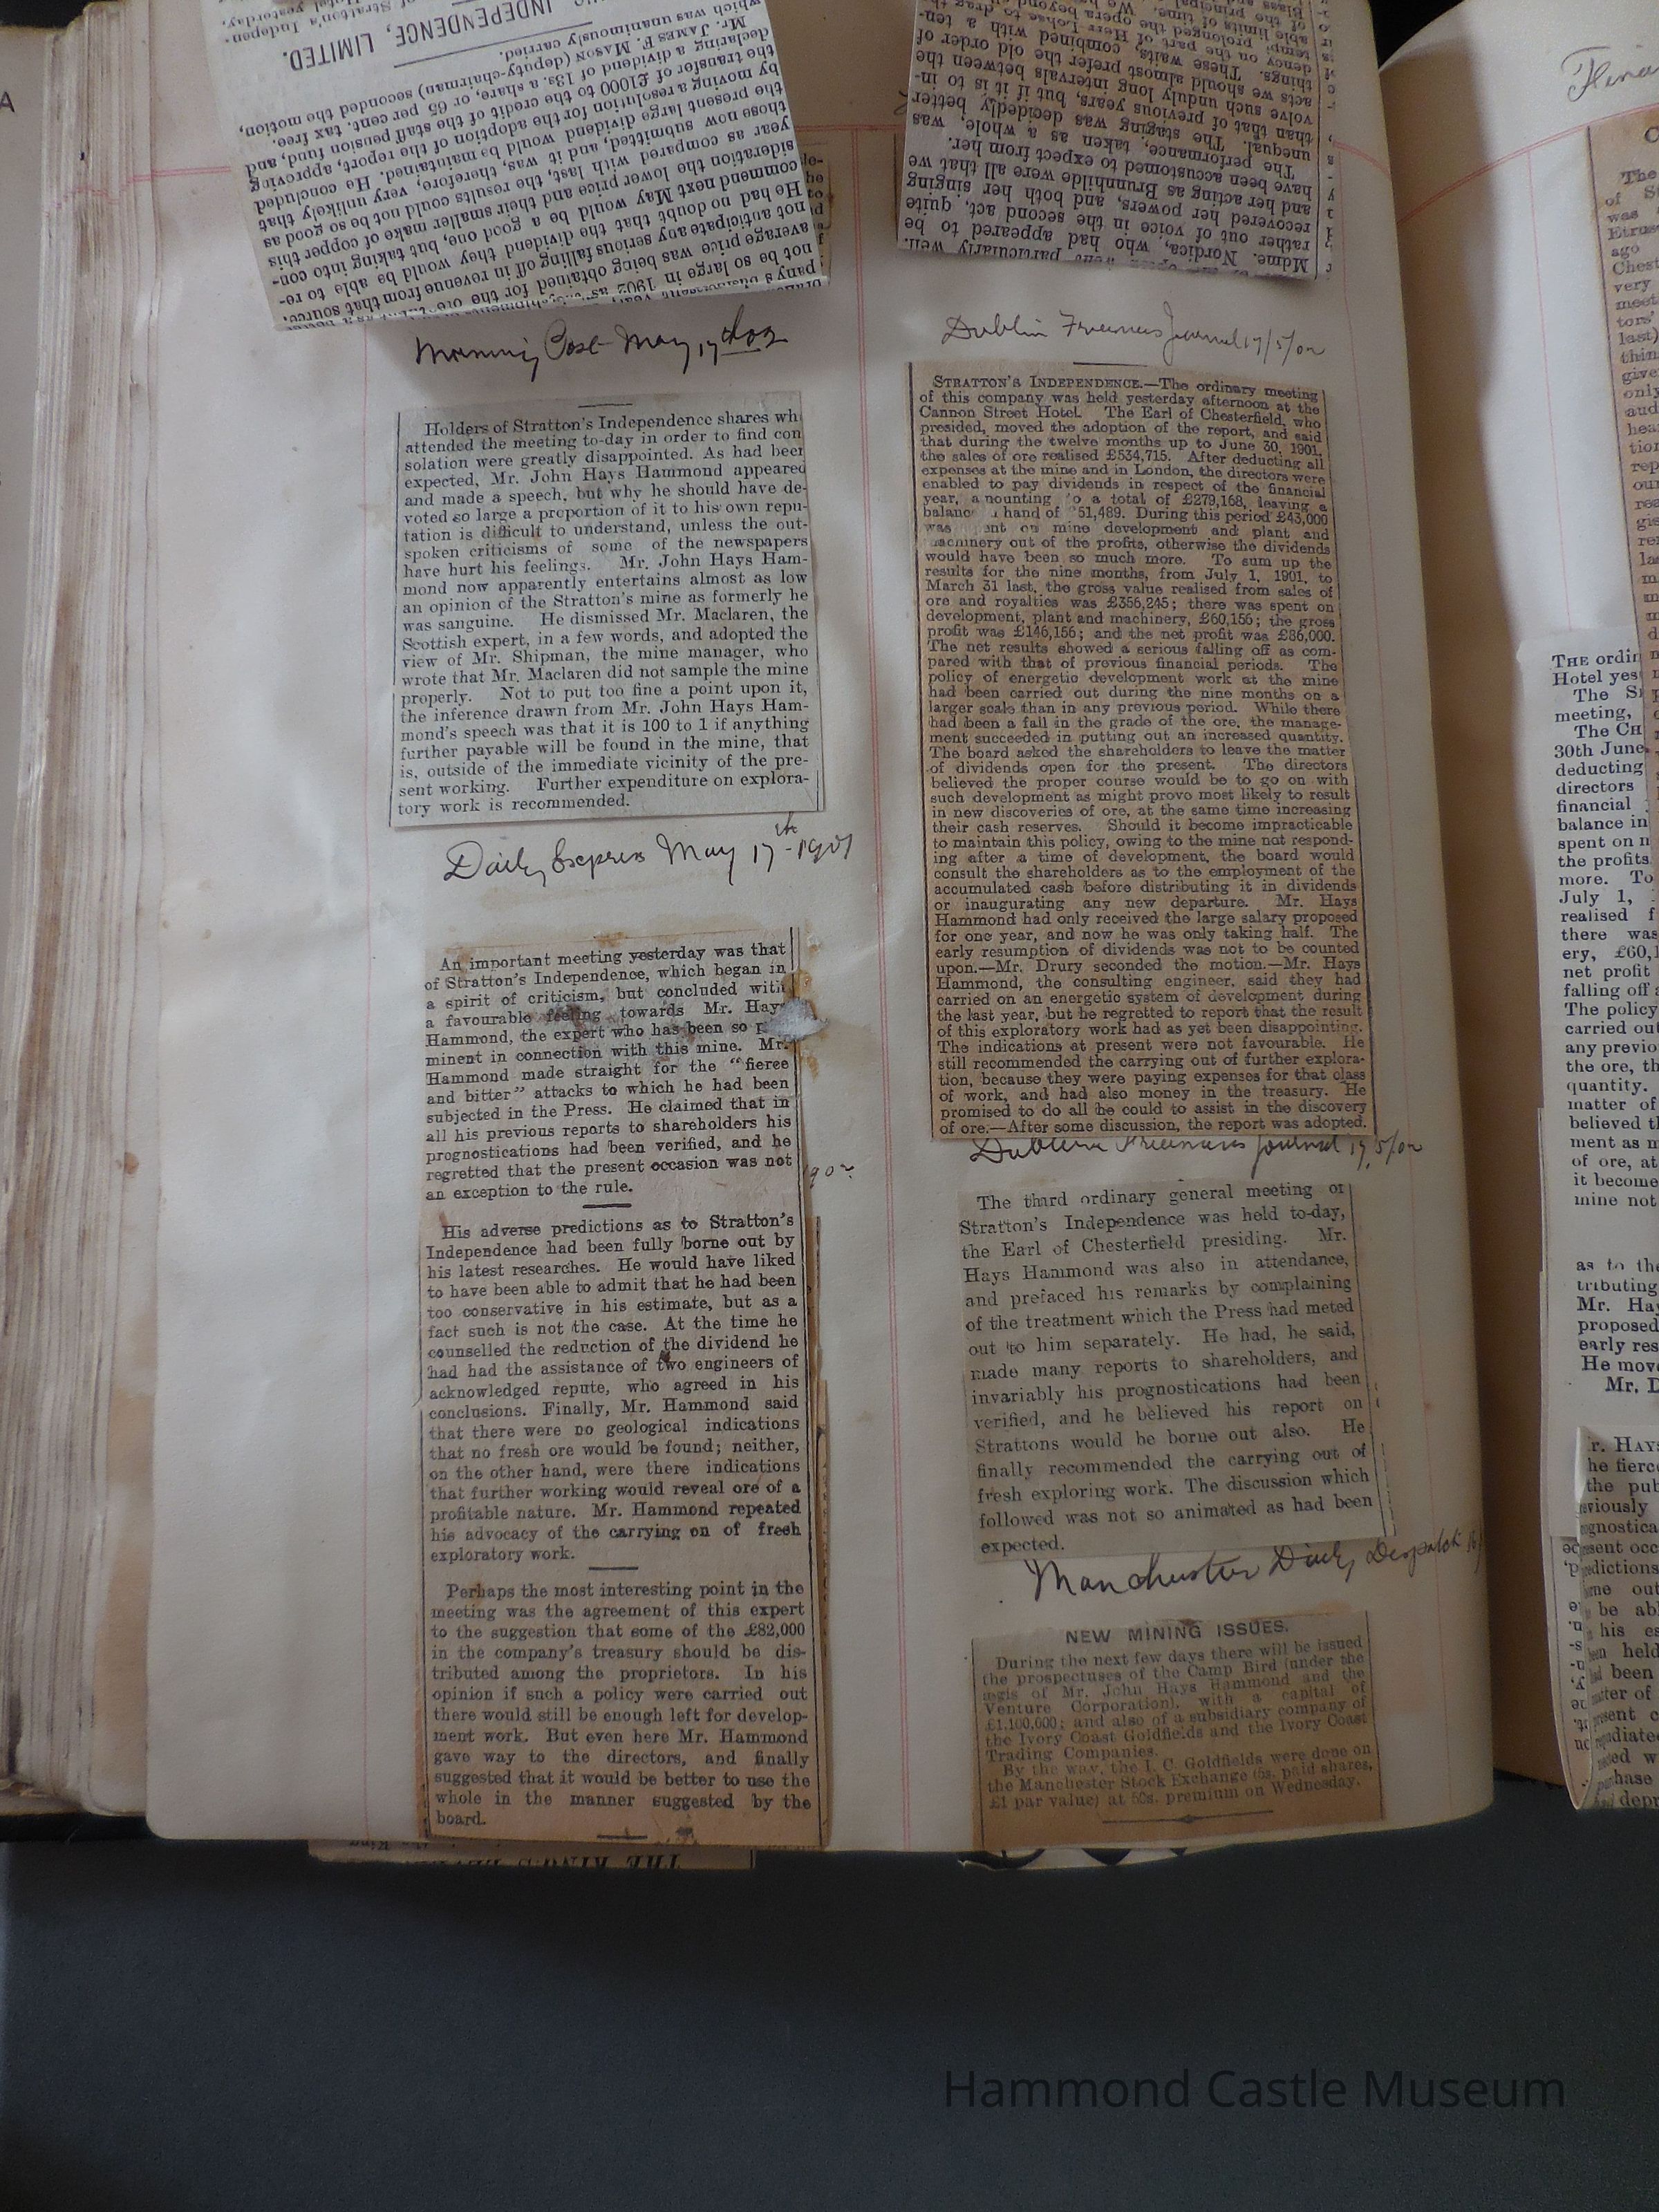 INDEPENDENCE, LIMITED.
which was unanimously carried.
Mr. JAMES F. MASON (deputy-chairman) seconded the motion,
declaring a dividend of 13s. a share, or 65 per cent. tax free.
the transfer of £1000 to the credit of the staff pension fund, and
by moving a resolution for the adoption of the report, approving
the present large dividend would be maintained. He concluded
those now submitted, and it was, therefore, very unlikely that
year as compared with last, the results could not be so good as
sideration the lower price and their smaller make of copper this
commend next May would be a good one, but taking into con-
He had no doubt that the dividend they would be able to re-
not anticipate any serious falling off in revenue from that source.
average price was being obtained for the ore
not be so large in 1902 as
Morning Post May 17th 02
Holders of Stratton's Independence shares wh
attended the meeting to-day in order to find con
solation were greatly disappointed. As had been
expected, Mr. John Hays Hammond appeared
and made a speech, but why he should have de-
voted so large a proportion of it to his own repu-
tation is difficult to understand, unless the out-
spoken criticisms of some of the newspapers
have hurt his feelings. Mr. John Hays Ham-
mond now apparently entertains almost as low
an opinion of the Stratton's mine as formerly he
was sanguine. He dismissed Mr. Maclaren, the
Scottish expert, in a few words, and adopted the
view of Mr. Shipman, the mine manager, who
wrote that Mr. Maclaren did not sample the mine
properly. Not to put too fine a point upon it,
the inference drawn from Mr. John Hays Ham-
mond's speech was that it is 100 to 1 if anything
further payable will be found in the mine, that
is, outside of the immediate vicinity of the pre-
sent working. Further expenditure on explora-
tory work is recommended.
Daily Express May 17th-1902
An important meeting yesterday was that
of Stratton's Independence, which began in
a spirit of criticism, but concluded with
a favourable feeling towards Mr. Hays
Hammond, the expert who has been so p
minent in connection with this mine. Mr.
Hammond made straight for the "fierce
and bitter" attacks to which he had been
subjected in the Press. He claimed that in
all his previous reports to shareholders his
prognostications had been verified, and he
regretted that the present occasion was not
an exception to the rule.
His adverse predictions as to Stratton's
Independence had been fully borne out by
his latest researches. He would have liked
to have been able to admit that he had been
too conservative in his estimate, but as a
fact such is not the case. At the time he
counselled the reduction of the dividend he
had had the assistance of two engineers of
acknowledged repute, who agreed in his
conclusions. Finally, Mr. Hammond said
that there were no geological indications
that no fresh ore would be found; neither,
on the other hand, were there indications
that further working would reveal ore of a
profitable nature. Mr. Hammond repeated
his advocacy of the carrying on of fresh
exploratory work.
Perhaps the most interesting point in the
meeting was the agreement of this expert
to the suggestion that some of the £82,000
in the company's treasury should be dis-
tributed among the proprietors. In his
opinion if such a policy were carried out
there would still be enough left for develop-
ment work. But even here Mr. Hammond
gave way to the directors, and finally
suggested that it would be better to use the
whole in the manner suggested by the
board.
THE KING'S
of the principal
able limits of time. We
tempi prolonged the opera beyond
dency on the part of Herr Lohse to drag the
things. These waits, combined with a ten-
acts we should almost prefer the old order of
volve such unduly long intervals between the
than that of previous years, but if it is to in-
unequal. The staging was decidedly better
The performance, taken as a whole, was
have been accustomed to expect from her.
and her acting as Brunnhilde were all that we
recovered her powers, and both her singing
rather out of voice in the second act, quite
Mdme. Nordica, who had appeared to be
particularly well.
Dublin Freemans Journal 17/5/02
STRATTON'S INDEPENDENCE.—The ordinary meeting
of this company was held yesterday afternoon at the
Cannon Street Hotel. The Earl of Chesterfield, who
presided, moved the adoption of the report, and said
that during the twelve months up to June 30, 1901,
the sales of ore realised £534,715. After deducting all
expenses at the mine and in London, the directors were
enabled to pay dividends in respect of the financial
year, a nounting o a total of £279,168, leaving a
balanc hand of 51,489. During this period £43,000
was ent on mine development and plant and
achinery out of the profits, otherwise the dividends
would have been so much more. To sum up the
results for the nine months, from July 1, 1901, to
March 31 last, the gross value realised from sales of
ore and royalties was £356,245; there was spent on
development, plant and machinery, £60,156; the gross
profit was £146,156; and the net profit was £86,000.
The net results showed a serious falling off as com-
pared with that of previous financial periods. The
policy of energetic development work at the mine
had been carried out during the nine months on a
larger scale than in any previous period. While there
had been a fall in the grade of the ore, the manage-
ment succeeded in putting out an increased quantity.
The board asked the shareholders to leave the matter
of dividends open for the present. The directors
believed the proper course would be to go on with
such development as might provo most likely to result
in new discoveries of ore, at the same time increasing
their cash reserves. Should it become impracticable
to maintain this policy, owing to the mine not respond-
ing after a time of development, the board would
consult the shareholders as to the employment of the
accumulated cash before distributing it in dividends
or inaugurating any new departure. Mr. Hays
Hammond had only received the large salary proposed
for one year, and now he was only taking half. The
early resumption of dividends was not to be counted
upon.—Mr. Drury seconded the motion.—Mr. Hays
Hammond, the consulting engineer, said they had
carried on an energetic system of development during
the last year, but he regretted to report that the result
of this exploratory work had as yet been disappointing.
The indications at present were not favourable. He
still recommended the carrying out of further explora-
tion, because they were paying expenses for that class
of work, and had also money in the treasury. He
promised to do all he could to assist in the discovery
of ore.—After some discussion, the report was adopted.
Dublin Freemans Journal 17/5/02
The third ordinary general meeting of
Stratton's Independence was held to-day,
the Earl of Chesterfield presiding. Mr.
Hays Hammond was also in attendance,
and prefaced his remarks by complaining
of the treatment which the Press had meted
out to him separately. He had, he said,
made many reports to shareholders, and
invariably his prognostications had been
verified, and he believed his report on
Strattons would be borne out also. He
finally recommended the carrying out of
fresh exploring work. The discussion which
followed was not so animated as had been
expected.
Manchester Daily Despatch
NEW MINING ISSUES.
During the next few days there will be issued
the prospectuses of the Camp Bird (under the
ægis of Mr. John Hays Hammond and the
Venture Corporation), with a capital of
£1,100,000; and also of a subsidiary company of
the Ivory Coast Goldfields and the Ivory Coast
Trading Companies.
By the way, the I. C. Goldfields were done on
the Manchester Stock Exchange (5s. paid shares,
£1 par value) at 50s. premium on Wednesday.
THE ordin
Hotel yes
meeting,
30th June
deducting
directors
financial
balance in
spent on m
the profits
more. To
July 1,
realised f
there was
ery, £60,1
net profit
falling off a
The policy
carried out
any previo
the ore, th
quantity.
matter of
believed th
ment as m
of ore, at
it become
mine not
as to the
tributing
Mr. Hay
proposed
early res
He move
Mr. D
Hammond Castle Museum